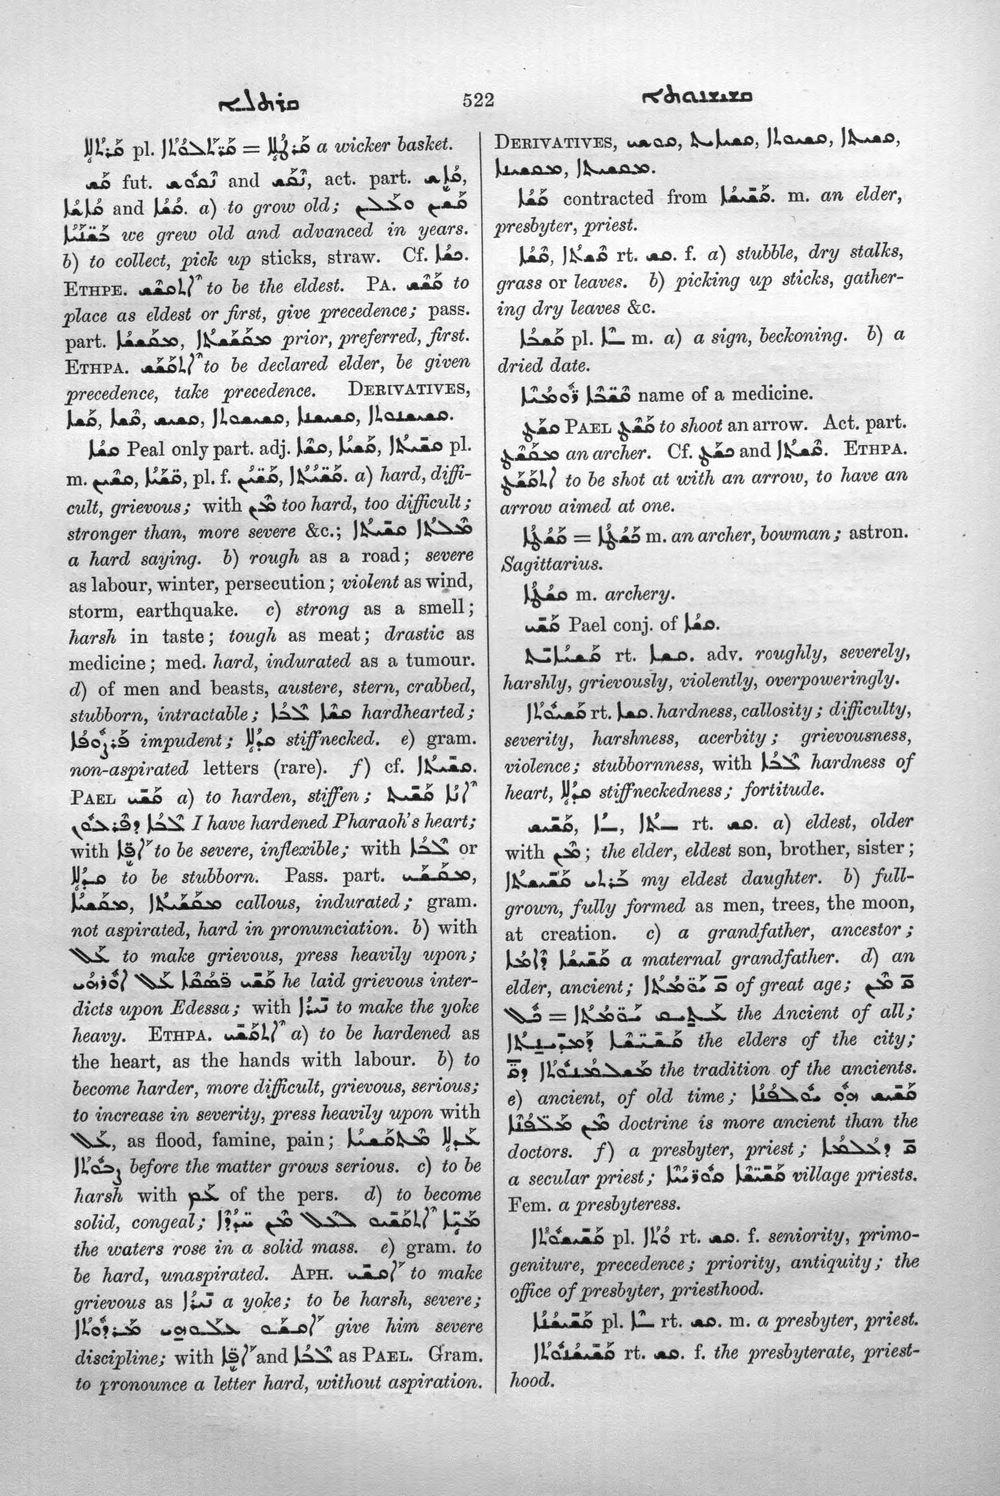 ܩܪܬܠܐ 522 ܩܫܝܫܘܬܐ
ܩܪܛܠܐ pl. = a wicker basket.
ܩܫ fut. and ܢܩܫ, act. part.
and a) to grow old;
we grew old and advanced in years.
b) to collect, pick up sticks, straw. Cf.
ETHPE. to be the eldest. PA. ܩܫܫ to
place as eldest or first, give precedence; pass.
part. ܡܩܫܫܐ, ܡܩܫܫܬܐ prior, preferred, first.
ETHPA. ܐܬܩܫܫ to be declared elder, be given
precedence, take precedence. DERIVATIVES,
ܩܫܐ, ܩܫܐ, ܩܫܝܫ, ܩܫܝܫܘܬܐ, ܩܫܝܫܢܐ, ܩܫܝܫܢܘܬܐ.
ܩܫܐ Peal only part. adj. ܩܫܐ, ܩܫܝܐ, ܩܫܝܬܐ pl.
m. ܩܫܝܢ, ܩܫܝܐ, pl. f. ܩܫܝܢ, ܩܫܝܬܐ. a) hard, diffi-
cult, grievous; with ܡܢ too hard, too difficult;
stronger than, more severe &c.; ܡܠܬܐ ܩܫܝܬܐ
a hard saying. b) rough as a road; severe
as labour, winter, persecution; violent as wind,
storm, earthquake. c) strong as a smell;
harsh in taste; tough as meat; drastic as
medicine; med. hard, indurated as a tumour.
d) of men and beasts, austere, stern, crabbed,
stubborn, intractable; ܩܫܐ ܠܒܐ hardhearted;
ܦܪܨܘܦܐ impudent; ܩܕܠܐ stiffnecked. e) gram.
non-aspirated letters (rare). f) cf. ܩܫܝܬܐ.
PAEL ܩܫܝ a) to harden, stiffen; ܐܢܐ ܩܫܝܬ
ܠܒܐ ܕܦܪܥܘܢ I have hardened Pharaoh's heart;
with ܐܦܐ to be severe, inflexible; with ܠܒܐ or
ܩܕܠܐ to be stubborn. Pass. part. ܡܩܫܝ,
ܡܩܫܝܐ, ܡܩܫܝܬܐ callous, indurated; gram.
not aspirated, hard in pronunciation. b) with
ܥܠ to make grievous, press heavily upon;
ܩܫܝ ܥܠ ܐܘܪܗܝ he laid grievous inter-
dicts upon Edessa; with ܢܝܪܐ to make the yoke
heavy. ETHPA. ܐܬܩܫܝ a) to be hardened as
the heart, as the hands with labour. b) to
become harder, more difficult, grievous, serious;
to increase in severity, press heavily upon with
ܥܠ, as flood, famine, pain;
before the matter grows serious. c) to be
harsh with ܥܡ of the pers. d) to become
solid, congeal; ܡܝܐ ܐܬܩܫܝܘ
the waters rose in a solid mass. e) gram. to
be hard, unaspirated. APH. ܐܩܫܝ to make
grievous as ܢܝܪܐ a yoke; to be harsh, severe;
ܐܩܫܘ ܥܠܘܗܝ ܡܪܕܘܬܐ give him severe
discipline; with ܐܦܐ and ܠܒܐ as PAEL. Gram.
to pronounce a letter hard, without aspiration.
DERIVATIVES, ܩܫܝܐܝܬ, ܩܫܝܘܬܐ, ܩܫܝܬܐ,
ܡܩܫܝܢܐ, ܡܩܫܝܬܐ.
ܩܫܐ contracted from ܩܫܝܫܐ. m. an elder,
presbyter, priest.
ܩܫܐ, rt. ܩܫ. f. a) stubble, dry stalks,
grass or leaves. b) picking up sticks, gather-
ing dry leaves &c.
ܩܫܒܐ pl. m. a) a sign, beckoning. b) a
dried date.
name of a medicine.
ܩܫܛ PAEL ܩܫܛ to shoot an arrow. Act. part.
ܡܩܫܛ an archer. Cf. and ܩܫܬܐ. ETHPA.
ܐܬܩܫܛ to be shot at with an arrow, to have an
arrow aimed at one.
ܩܫܛܐ = m. an archer, bowman; astron.
Sagittarius.
ܩܫܛܐ m. archery.
ܩܫܝ Pael conj. of ܩܫܐ.
ܩܫܝܐܝܬ rt. ܩܫܐ. adv. roughly, severely,
harshly, grievously, violently, overpoweringly.
ܩܫܝܘܬܐ rt. ܩܫܐ. hardness, callosity; difficulty,
severity, harshness, acerbity; grievousness,
violence; stubbornness, with ܠܒܐ hardness of
heart, ܩܕܠܐ stiffneckedness; fortitude.
ܩܫܝܫ, rt. ܩܫ. a) eldest, older
with ܡܢ; the elder, eldest son, brother, sister;
ܒܪܬܝ ܩܫܝܫܬܐ my eldest daughter. b) full-
grown, fully formed as men, trees, the moon,
at creation. c) a grandfather, ancestor;
ܩܫܝܫܐ ܕܐܡܐ a maternal grandfather. d) an
elder, ancient; of great age;
ܥܬܝܩ ܝܘܡܬܐ = the Ancient of all;
ܩܫܝܫܐ ܕܡܕܝܢܬܐ the elders of the city;
ܡܫܠܡܢܘܬܐ the tradition of the ancients.
e) ancient, of old time; ܩܫܝܫ ܗܘ ܝܘܠܦܢܐ
ܡܢ ܡܠܦܢܐ doctrine is more ancient than the
doctors. f) a presbyter, priest; ܕܥܠܡܐ
a secular priest; ܩܫܝܫܐ ܩܘܪܝܝܐ village priests.
Fem. a presbyteress.
ܩܫܝܫܘܬܐ pl. rt. ܩܫ. f. seniority, primo-
geniture, precedence; priority, antiquity; the
office of presbyter, priesthood.
ܩܫܝܫܢܐ pl. rt. ܩܫ. m. a presbyter, priest.
ܩܫܝܫܢܘܬܐ rt. ܩܫ. f. the presbyterate, priest-
hood.